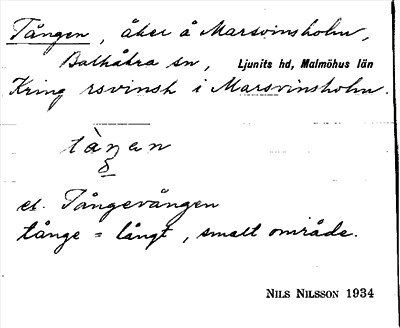 Tången, åker å Marsvinsholm,
Balkåkra sn, Ljunits hd, Malmöhus län
Kring rsvinsh i Marsvinsholm.
tàŋan
el. Tångevången
tånge = långt, smalt område.
NILS NILSSON 1934